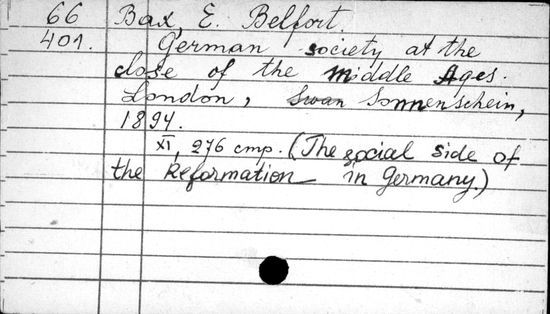 66 Bax, E. Belfort
401. German society at the
close of the Middle Ages.
London, Swan Sonnenschein,
1894.
XI, 276 стр. (The social side of
the Reformation in Germany.)